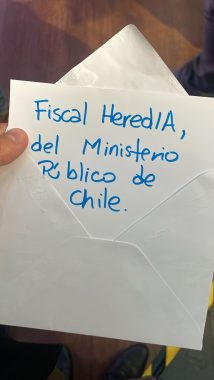 Fiscal HeredIA,
del Ministerio
Público de
Chile.